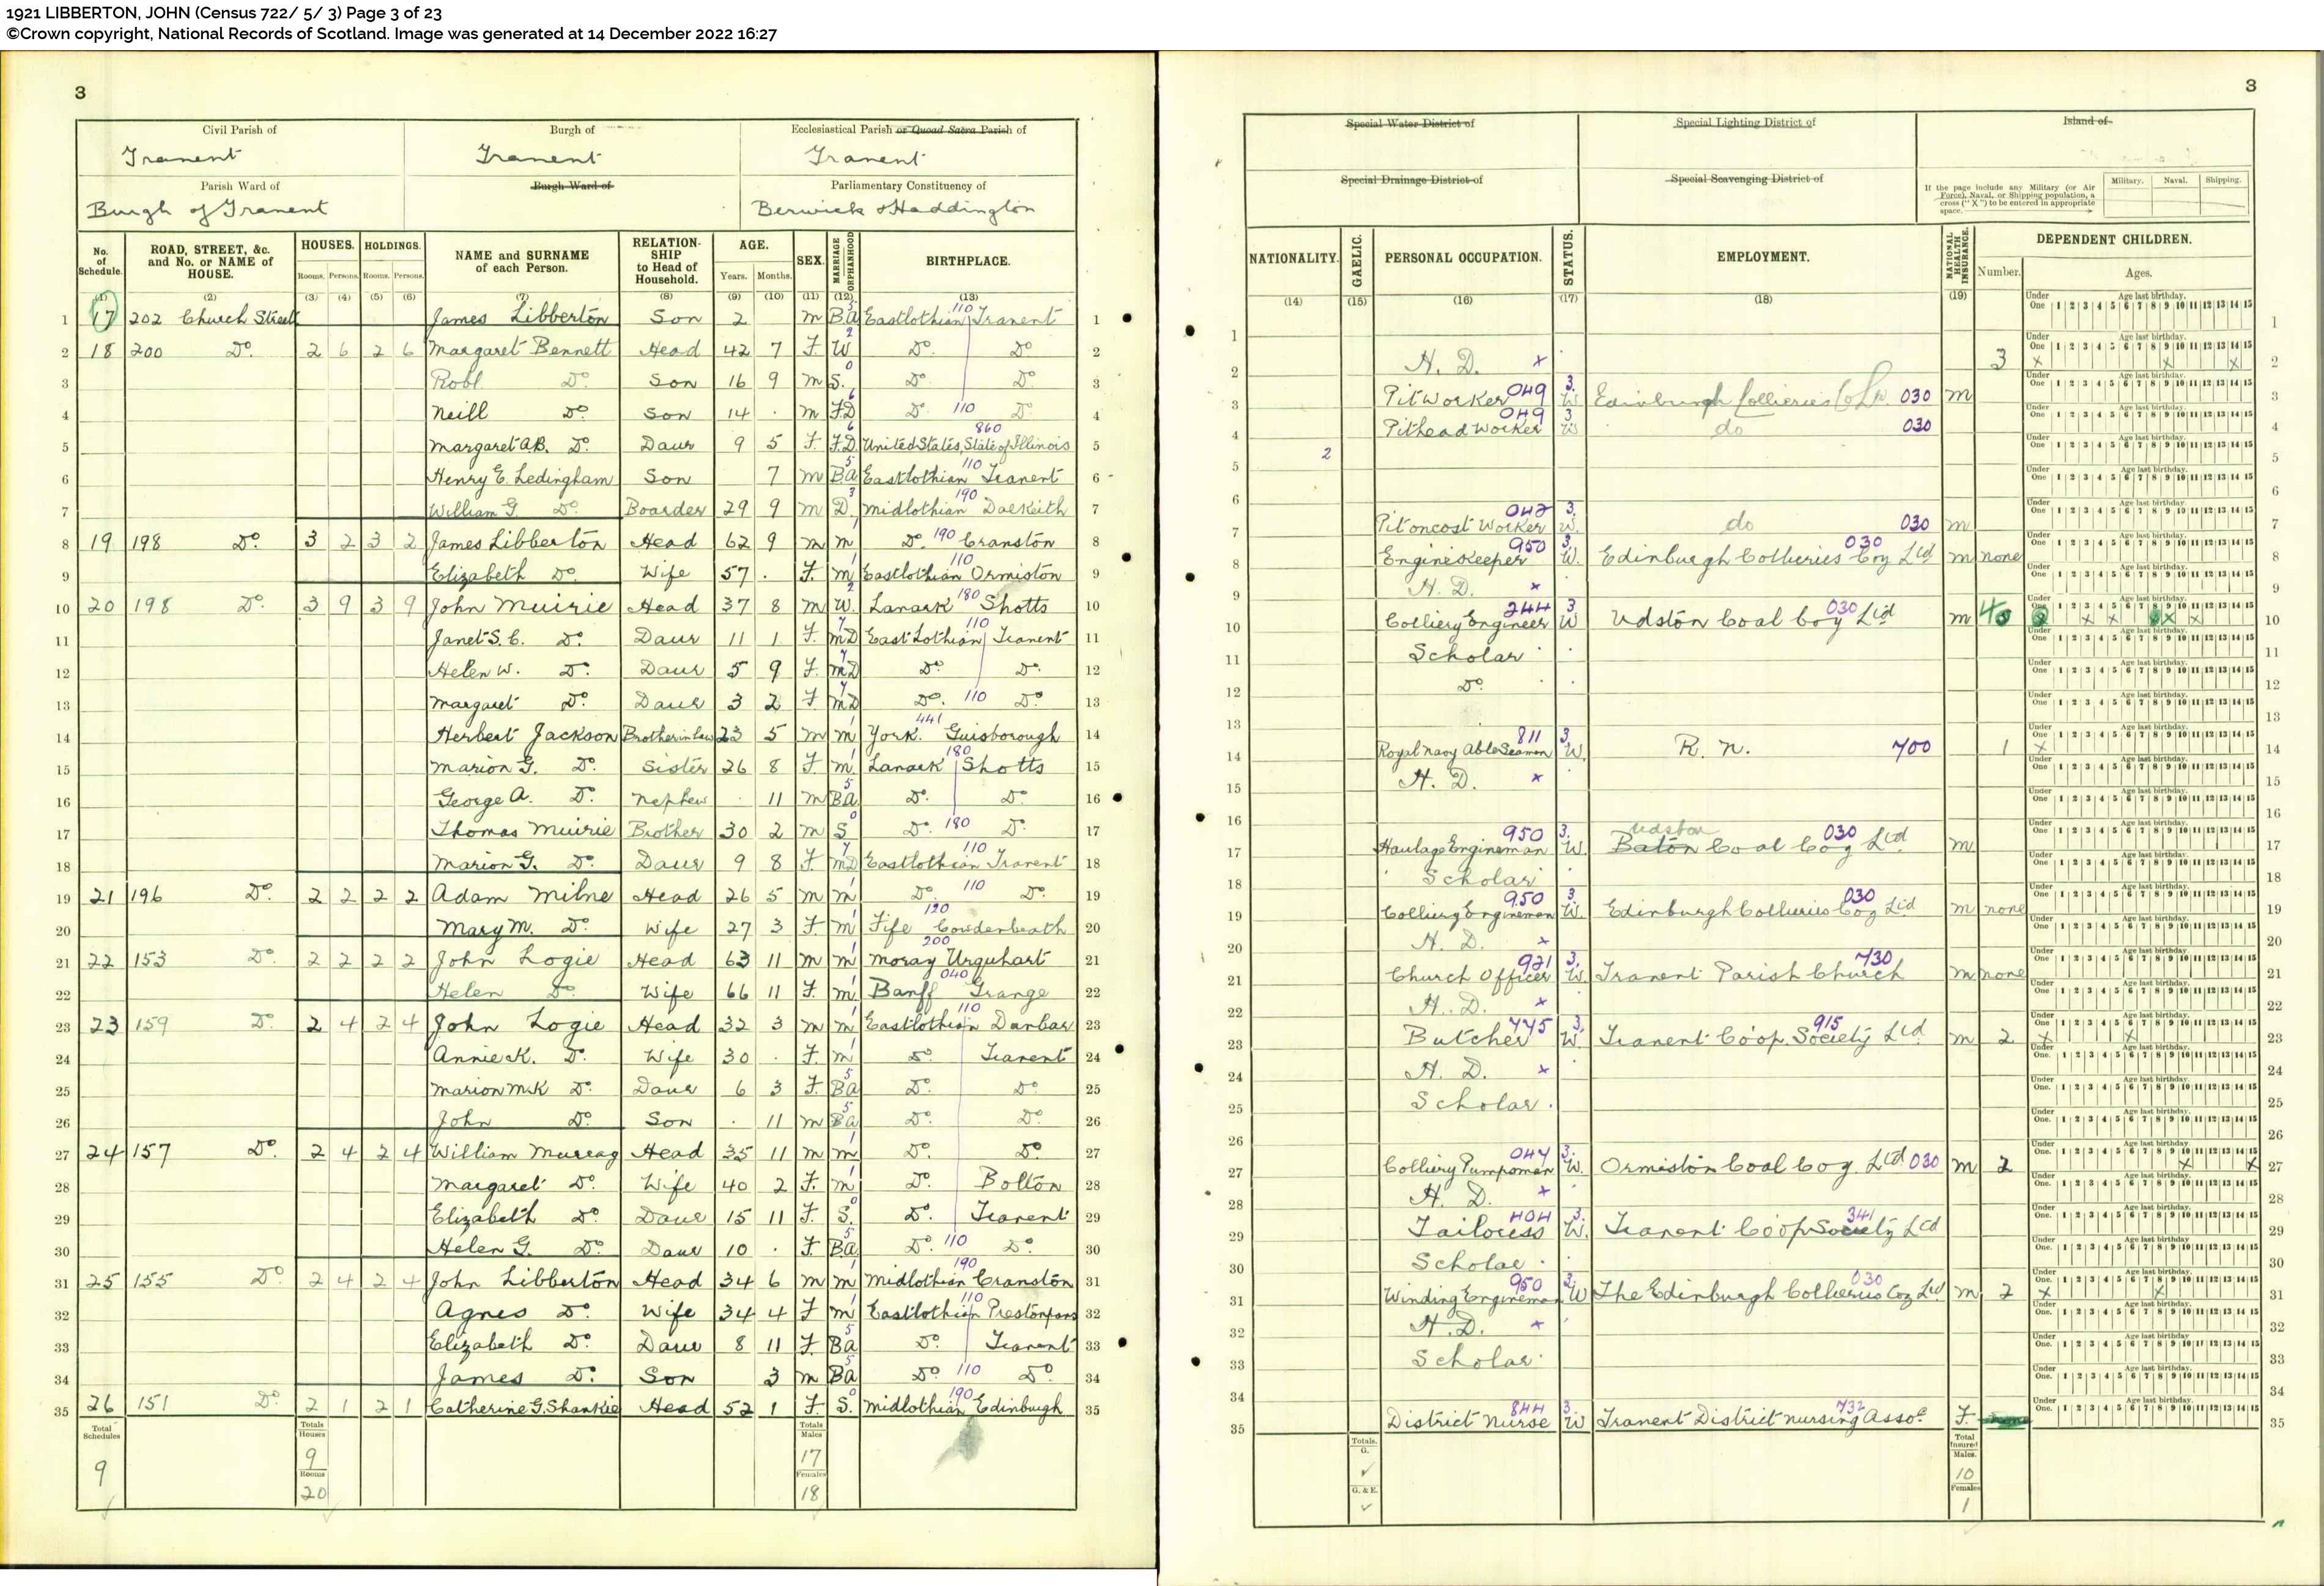 1921 LIBBERTON, JOHN (Census 722/ 5/ 3) Page 3 of 23
©Crown copyright, National Records of Scotland. Image was generated at 14 December 2022 16:27
3
Civil Parish of Tranent
Burgh of Tranent
Ecclesiastical Parish or Quoad Sacra Parish of Tranent
Parish Ward of Burgh of Tranent
Burgh Ward of
Parliamentary Constituency of Berwick & Haddington
No. of Schedule. ROAD, STREET, &c. and No. or NAME of HOUSE. HOUSES. HOLDINGS. NAME and SURNAME of each Person. RELATIONSHIP to Head of Household. AGE. SEX. MARRIAGE ORPHANHOOD BIRTHPLACE.
Rooms. Persons. Rooms. Persons. Years. Months.
(1) (2) (3) (4) (5) (6) (7) (8) (9) (10) (11) (12) (13)
1 17 202 Church Street James Libberton Son 2 M B.a 5 Eastlothian 110 Tranent 1
2 18 200 Do. 2 6 2 6 Margaret Bennett Head 42 7 F. W 2 Do. Do 2
3 Robt. Do Son 16 9 M S. 0 Do. Do. 3
4 Neill Do Son 14 . M F.D 6 Do. 110 Do 4
5 Margaret A.B. Do. Daur 9 5 F. F.D. 6 United States, State of Illinois 860 5
6 Henry E. Ledingham Son 7 M Ba 5 Eastlothian 110 Tranent 6
7 William G. Do Boarder 29 9 M D. 3 Midlothian 190 Dalkeith 7
8 19 198 Do. 3 2 3 2 James Libberton Head 62 9 M M Do. 190 Cranston 8
9 Elizabeth Do Wife 57 . F. M Eastlothian 110 Ormiston 9
10 20 198 Do. 3 9 3 9 John Muirie Head 37 8 M W. 2 Lanark 180 Shotts 10
11 Janet S. C. Do. Daur 11 1 F. MD 7 East Lothian 110 Tranent 11
12 Helen W. Do. Daur 5 9 F. MD 7 Do. Do. 12
13 Margaret Do. Daur 3 2 F. MD 7 Do. 110 Do 13
14 Herbert Jackson Brother in law 23 5 M M 1 York. 441 Guisborough 14
15 Marion G. Do. Sister 26 8 F. M. 1 Lanark 180 Shotts 15
16 George A. Do. Nephew . 11 M Ba 5 Do. Do. 16
17 Thomas Muirie Brother 30 2 M S 0 Do. 180 Do. 17
18 Marion G. Do. Daur 9 8 F. MD 7 Eastlothian 110 Tranent 18
19 21 196 Do. 2 2 2 2 Adam Milne Head 26 5 M M 1 Do. 110 Do. 19
20 Mary M. Do. Wife 27 3 F. M 1 Fife 120 Cowdenbeath 20
21 22 153 Do. 2 2 2 2 John Logie Head 63 11 M M 1 Moray 200 Urquhart 21
22 Helen Do. Wife 66 11 F. M. 1 Banff 040 Grange 22
23 23 159 Do. 2 4 2 4 John Logie Head 32 3 M M 1 Eastlothian 110 Dunbar 23
24 Annie K. Do. Wife 30 . F. M 1 Do Tranent 24
25 Marion McK Do. Daur 6 3 F. Ba 5 Do. Do. 25
26 John Do. Son . 11 M Ba 5 Do. Do. 26
27 24 157 Do. 2 4 2 4 William Murray Head 35 11 M M 1 Do Do 27
28 Margaret Do. Wife 40 2 F. M 1 Do. Bolton 28
29 Elizabeth Do. Daur 15 11 F. S. 0 Do. Tranent 29
30 Helen G. Do. Daur 10 . F. Ba 5 Do. 110 Do. 30
31 25 155 Do 2 4 2 4 John Libberton Head 34 6 M M 1 Midlothian 190 Cranston 31
32 Agnes Do. Wife 34 4 F M 1 Eastlothian 110 Prestonpans 32
33 Elizabeth Do. Daur 8 11 F. Ba 5 Do. Tranent 33
34 James Do. Son 3 M Ba 5 Do 110 Do 34
35 26 151 Do. 2 1 2 1 Catherine G. Shankie Head 52 1 F S. 0 Midlothian 190 Edinburgh 35
Total Schedules 9
Totals Houses 9
Rooms 20
Totals Males 17
Females 18
3
Special Water District of
Special Lighting District of
Island of
Special Drainage District of
Special Scavenging District of
If the page include any Military (or Air Force), Naval, or Shipping population, a cross ("X") to be entered in appropriate space.
Military. Naval. Shipping.
NATIONALITY. GAELIC. PERSONAL OCCUPATION. STATUS. EMPLOYMENT. NATIONAL HEALTH INSURANCE. DEPENDENT CHILDREN.
Number. Ages.
(14) (15) (16) (17) (18) (19)
Under One Age last birthday. 1 2 3 4 5 6 7 8 9 10 11 12 13 14 15
1
2 H. D. x 3 x x x 2
3 Pit Worker 049 3. W Edinburgh Collieries Co Ld. 030 M 3
4 Pithead Worker 049 3 W do 030 4
5 2 5
6
7 Pit oncost Worker 042 3. W. do 030 M 7
8 Engine Keeper 950 3. W. Edinburgh Collieries Coy Ltd 030 M none 8
9 H. D. x 9
10 Colliery Engineer 244 3 W Udston Coal Coy Ltd 030 M 10
11 Scholar 11
12 Do. 12
13
14 Royal Navy Able Seaman 811 3. W. R. N. 700 1 x 14
15 H. D. x 15
16
17 Haulage Engineman 950 3. W. Udston Coal Coy Ltd 030 M 17
18 Scholar 18
19 Colliery Engineman 950 3. W. Edinburgh Collieries Coy Ltd 030 M none 19
20 H. D. x 20
21 Church Officer 921 3. W. Tranent Parish Church 730 M none 21
22 H. D. x 22
23 Butcher 775 3. W. Tranent Coop. Society Ltd 915 M 2 x x 23
24 H. D. x 24
25 Scholar. 25
26
27 Colliery Pumpman 047 3. W. Ormiston Coal Coy. Ltd 030 M 2 x x 27
28 H. D. x 28
29 Tailoress 404 3. W. Tranent Coop Society Ltd 341 29
30 Scholar 30
31 Winding Engineman 950 3. W The Edinburgh Collieries Coy Ltd 030 M 2 x x 31
32 H. D. x 32
33 Scholar 33
34
35 District Nurse 844 3. W Tranent District Nursing Assoc. 732 F. 35
Totals. G.
G. & E.
Total Insured Males. 10
Females 1